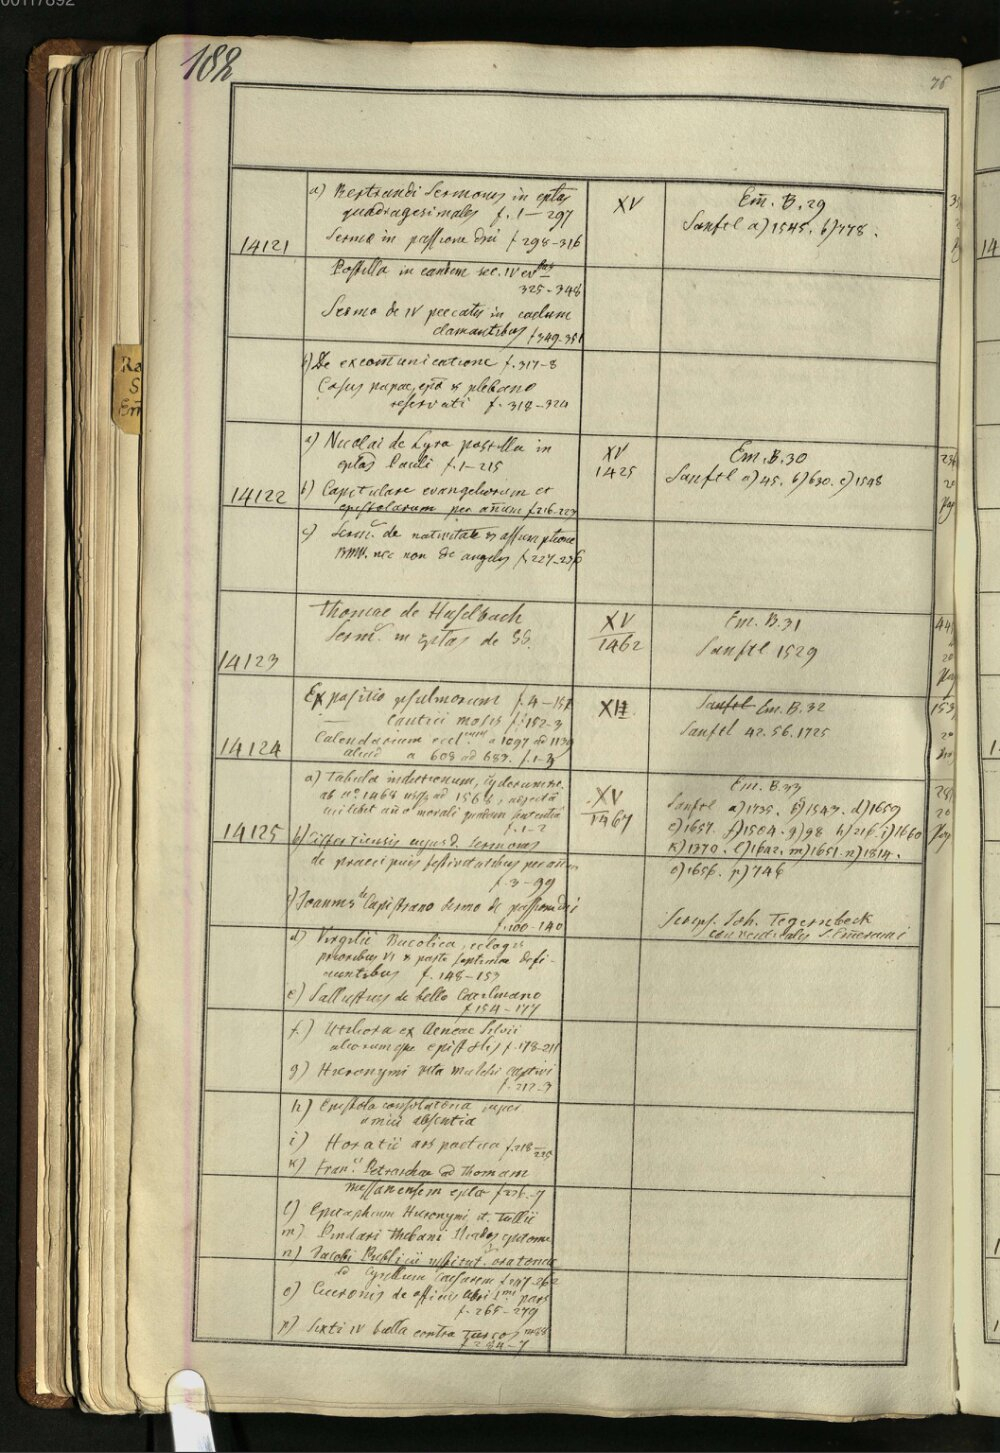 00117892
182
76
a) Bertrandi Sermones in eptas
quadragesimales f. 1–297
XV
Em. B. 29
Sanftl a) 1545. b) 778.
14121
Sermo in passione dni f. 298–316
Postilla in
325–348
Sermo de IV peccatis in caelum
clamantibus f. 349–351
b) De excommunicatione f. 317–8
Casus papae, epo & plebano
reservati f. 318–324
a) Nicolai de Lyra postilla in
eptas Pauli f. 1–215
XV
1425
Em. B. 30
Sanftl a) 45. b) 630. c) 1548
14122
b) Capitulare evangeliorum et
epistolarum per annum f. 216–227
c) Serm. de nativitate & assumptione
BMV. nec non de angelis f. 227–236
Thomae de Haselbach
Serm. in eptas de SS.
XV
1462
Em. B. 31
Sanftl 1529
14123
Expositio psalmorum f. 4–151
— cantici Mosis f. 152–3
Calendarium eccl. a 1097 ad 1139
aliud a 608 ad 683. f. 1–3
XII
Sanftl Em. B. 32
Sanftl 42. 56. 1725
14124
a) Tabula indictionum,
ab ao 1468 usq ad 1568, adjecta
cuilibet año morali quadam sententia
f. 1–2
XV
1467
Em. B. 33
Sanftl a) 1735. b) 1543. d) 1659
e) 1657. f) 1504. g) 98 h) 216. i) 1660
k) 1370. l) 1642. m) 1651. n) 1814.
o) 1656. p) 746
14125
b) sermones
de praecipuis festivitatibus per
f. 3–99
c) Joannis de Capistrano sermo de passione dni
f. 100–140
Scrips. Joh. Tegernbeck
conventualis S. Emerami
d) Virgilii Bucolica, eclogis
prioribus VI & parte septimae defi-
cientibus f. 148–153
e) Sallustius de bello Catilinario
f. 154–177
f.) Utiliora ex Aeneae Silvii
aliorumque epistolis f. 178–211
g) Hieronymi vita Malchi captivi
f. 212–3
h) Epistola consolatoria super
amici absentia
i) Horatii ars poetica f. 218–225
k) Franc. Petrarchae ad Thomam
Messanensem epla f. 226–7
l) Epitaphium Hieronymi it. Tullii
m) Pindari Thebani Iliados epitome
n) Jacobi Publicii institut. oratoriae
ad Cyrillum Caesarem f. 247–262
o) Ciceronis de officiis libri 1mi pars
f. 265–279
p) Sixti IV bulla contra Turcos
f. 284–7